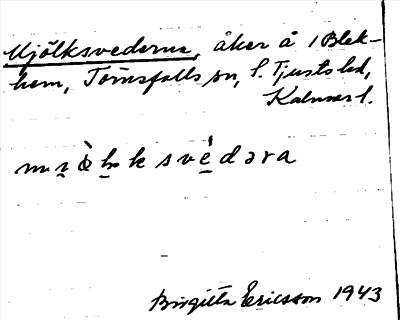 Mjölksvederna, åker å 1 Blek-
hem, Törnsfalls sn, S. Tjusts hd,
Kalmar l.
svèdəra
Birgitta Ericsson 1943